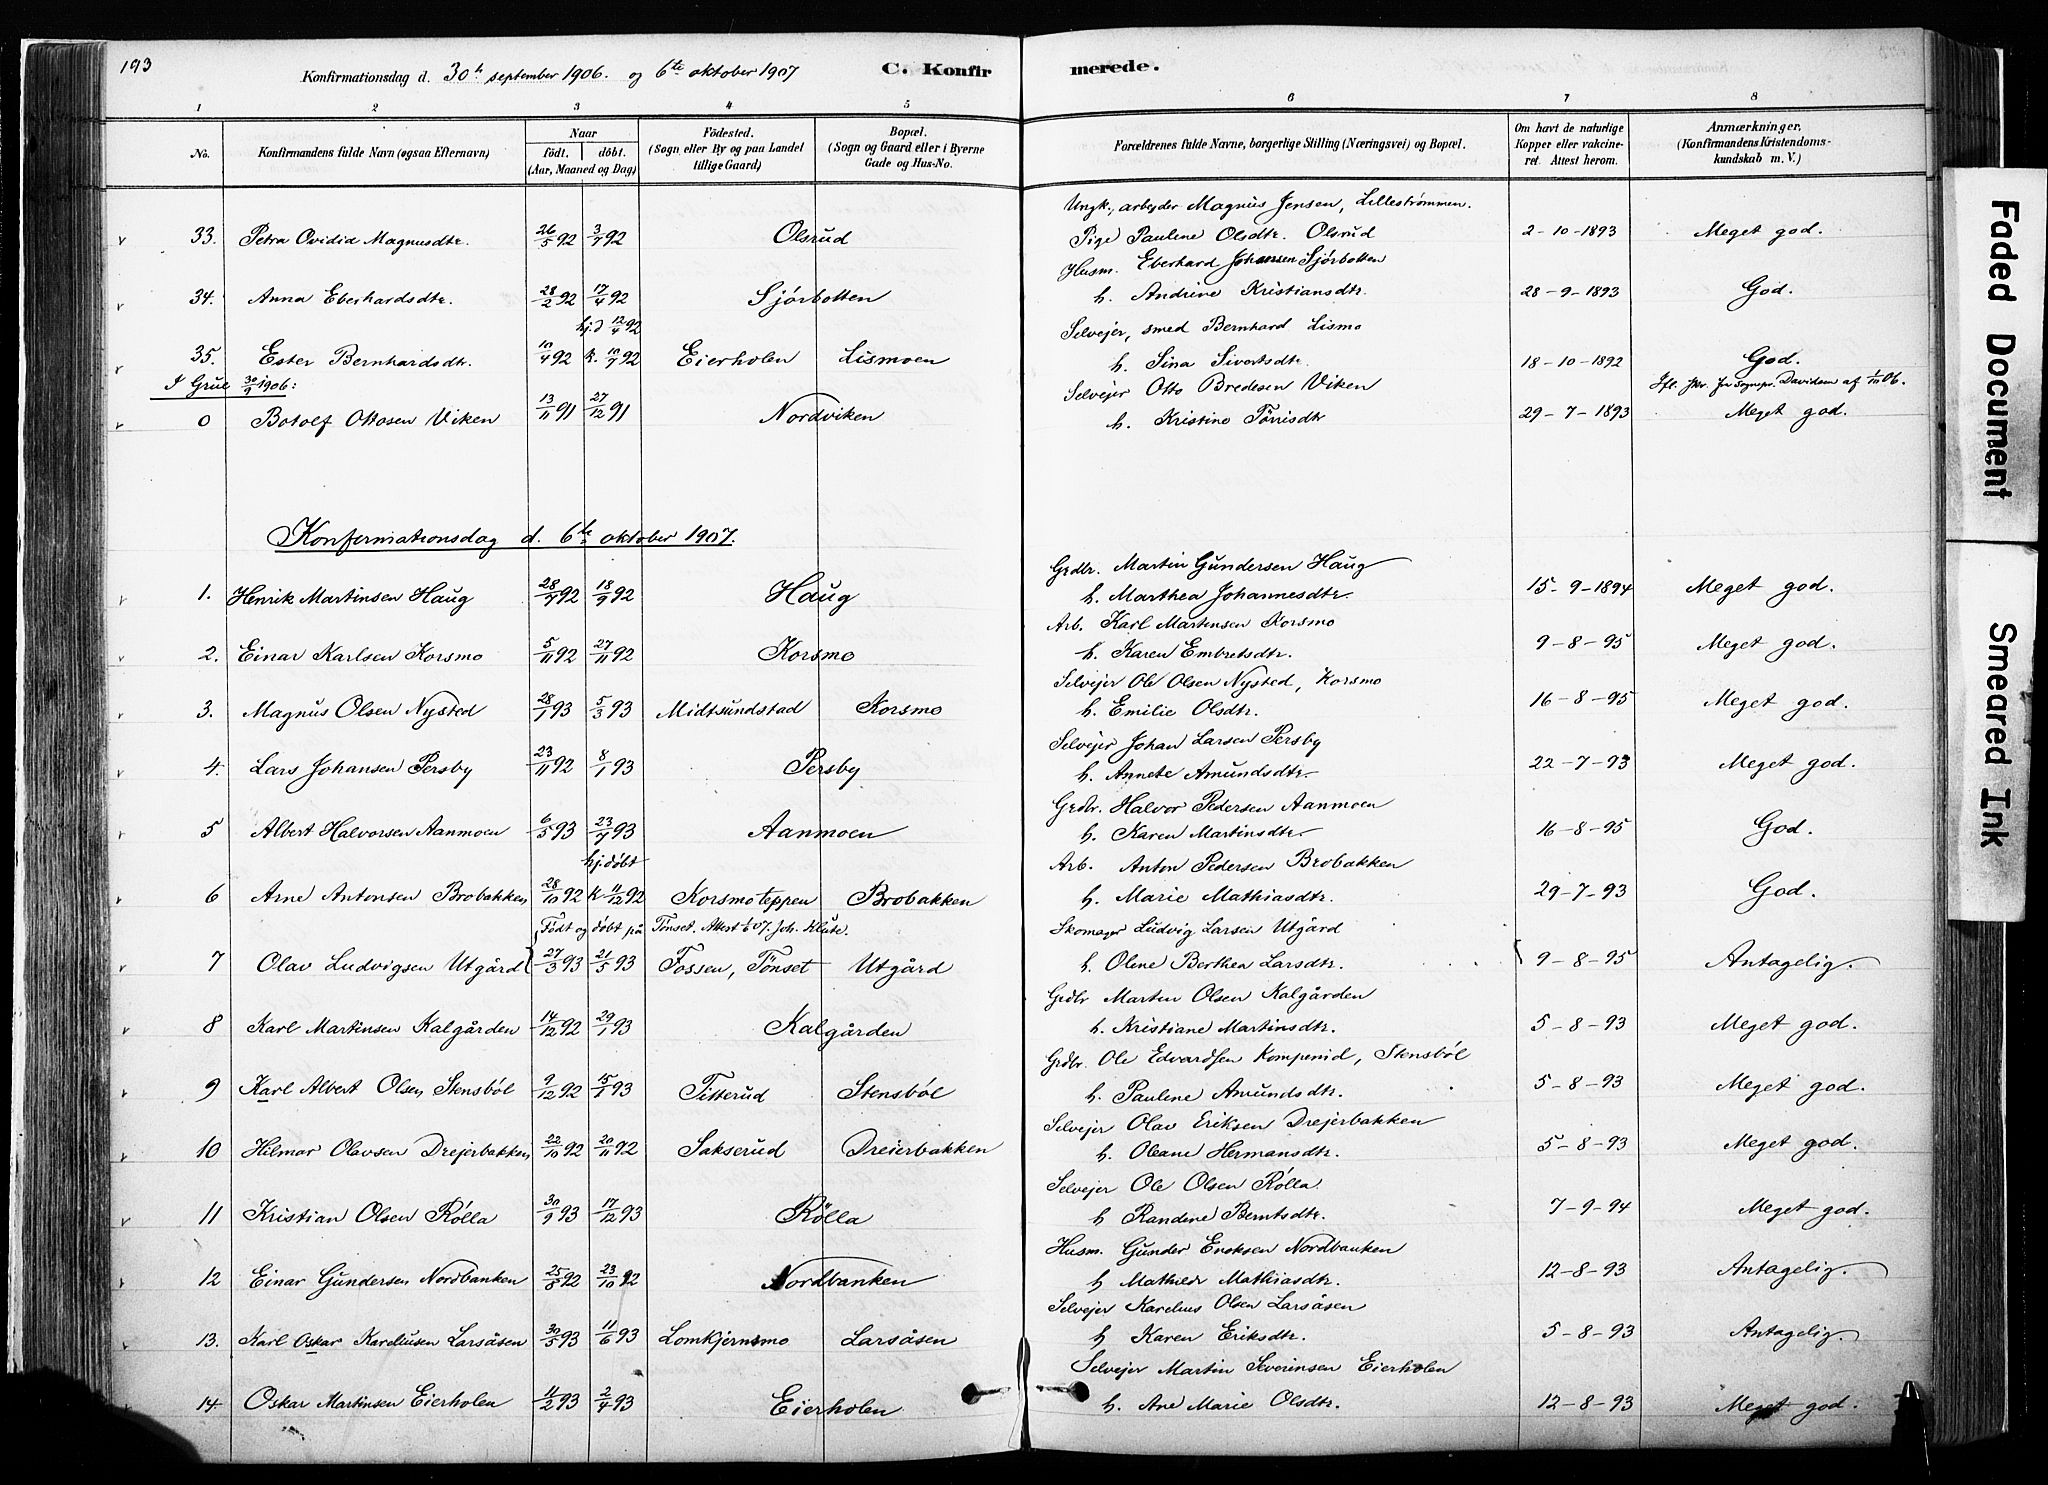 193
Konfirmationsdag d. 30te september 1906. og 6te oktober 1907
C. Konfirmerede.
1 2 3 4 5 6 7 8
No.
Konfirmandens fulde Navn (ogsaa Efternavn)
Naar
födt. döbt.
(Aar, Maaned og Dag)
Födested.
(Sogn eller By og paa Landet
tillige Gaard)
Bopæl.
(Sogn og Gaard eller i Byerne
Gade og Hus-No.
Forældrenes fulde Navne, borgerlige Stilling (Næringsvei) og Bopæl.
Om havt de naturlige
Kopper eller vakcine-
ret. Attest herom.
Anmærkninger.
(Konfirmandens Kristendoms-
kundskab m. V.)
Ungk., arbejder Magnus Jensen, Lillestrømmen.
33. Petra Ovidia Magnusdtr. 26/5 92 3/7 92 Olsrud Pige Paulene Olsdtr. Olsrud 2-10-1893 Meget god.
Husm. Eberhard Johansen Sjørbotten
34. Anna Eberhardsdtr. 28/2 92 17/4 92 Sjørbotten h. Andrine Kristiansdtr. 28-9-1893 God.
hj.d 12/4 92 Selvejer, smed Bernhard Lismo
35. Ester Bernhardsdtr. 10/4 92 k. 10/7 92 Eierholen Lismoen h. Sina Sivertsdtr. 18-10-1892 God.
I Grue 30/9 1906: Selvejer Otto Bredesen Viken Davidsen af 1/11 06.
0 Botolf Ottosen Viken 13/11 91 27/12 91 Nordviken h. Kristine Tørrisdtr 29-7-1893 Meget god.
Konfirmationsdag d. 6te oktober 1907.
Grdbr. Martin Gundersen Haug
1. Henrik Martinsen Haug 28/7 92 18/9 92 Haug h. Marthea Johannesdtr. 15-9-1894 Meget god.
Arb. Karl Martinsen Korsmo
2. Einar Karlsen Korsmo 5/11 92 27/11 92 Korsmo h. Karen Embretsdtr. 9-8-95 Meget god.
Selvejer Ole Olsen Nysted, Korsmo
3. Magnus Olsen Nysted 28/1 93 5/3 93 Midtsundstad Korsmo h. Emilie Olsdtr. 16-8-95 Meget god.
Selvejer Johan Larsen Persby
4. Lars Johansen Persby 23/11 92 8/1 93 Persby h. Annete Amundsdtr. 22-7-93 Meget god.
Grdbr. Halvor Pedersen Aanmoen
5 Albert Halvorsen Aanmoen 6/5 93 23/7 93 Aanmoen h. Karen Martinsdtr. 16-8-95 God.
hj.døbt Arb. Anton Pedersen Brobakken
6 Arne Antonsen Brobakken 28/10 92 k. 11/12 92 Korsmoteppen Brobakken h. Marie Mathiasdtr. 29-7-93 God.
Født og døbt på Tönset. Attest 6 07. Joh. Klüte. Skomager Ludvig Larsen Utgård
7 Olav Ludvigsen Utgård 27/3 93 21/5 93 Fossen, Tönset Utgård h. Olene Berthea Larsdtr. 9-8-95 Antagelig.
Grdbr Martin Olsen Kalgården
8 Karl Martinsen Kalgården 14/12 92 29/1 93 Kalgården h. Kristiane Martinsdtr. 5-8-93 Meget god.
Grdbr. Ole Edvardsen Kompenid, Stensböl
9 Karl Albert Olsen Stensböl 9/12 92 15/1 93 Titterud Stensböl h. Paulene Amundsdtr. 5-8-93 Meget god.
Selvejer Olav Eriksen Drejerbakken
10 Hilmar Olavsen Drejerbakken 22/10 92 20/11 92 Sakserud Dreierbakken h. Oleane Hermansdtr. 5-8-93 Meget god.
Selvejer Ole Olsen Rölla.
11 Kristian Olsen Rölla 30/9 93 17/12 93 Rölla h Randine Berntsdtr. 7-9-94 Meget god.
Husm. Gunder Eriksen Nordbanken
12 Einar Gundersen Nordbanken 25/8 92 23/10 92 Nordbanken h Mathilde Mathiasdtr. 12-8-93 Antagelig.
Selvejer Karelius Olsen Larsåsen
13. Karl Oskar Kareliusen Larsåsen 30/5 93 11/6 93 Lomkjernsmo Larsåsen h Karen Eriksdtr. 5-8-93 Antagelig.
Selvejer Martin Severinsen Eierholen
14. Oskar Martinsen Eierholen 11/2 93 2/4 93 Eierholen h. Ane Marie Olsdtr. 12-8-93 Meget god.
Faded Document
Smeared Ink